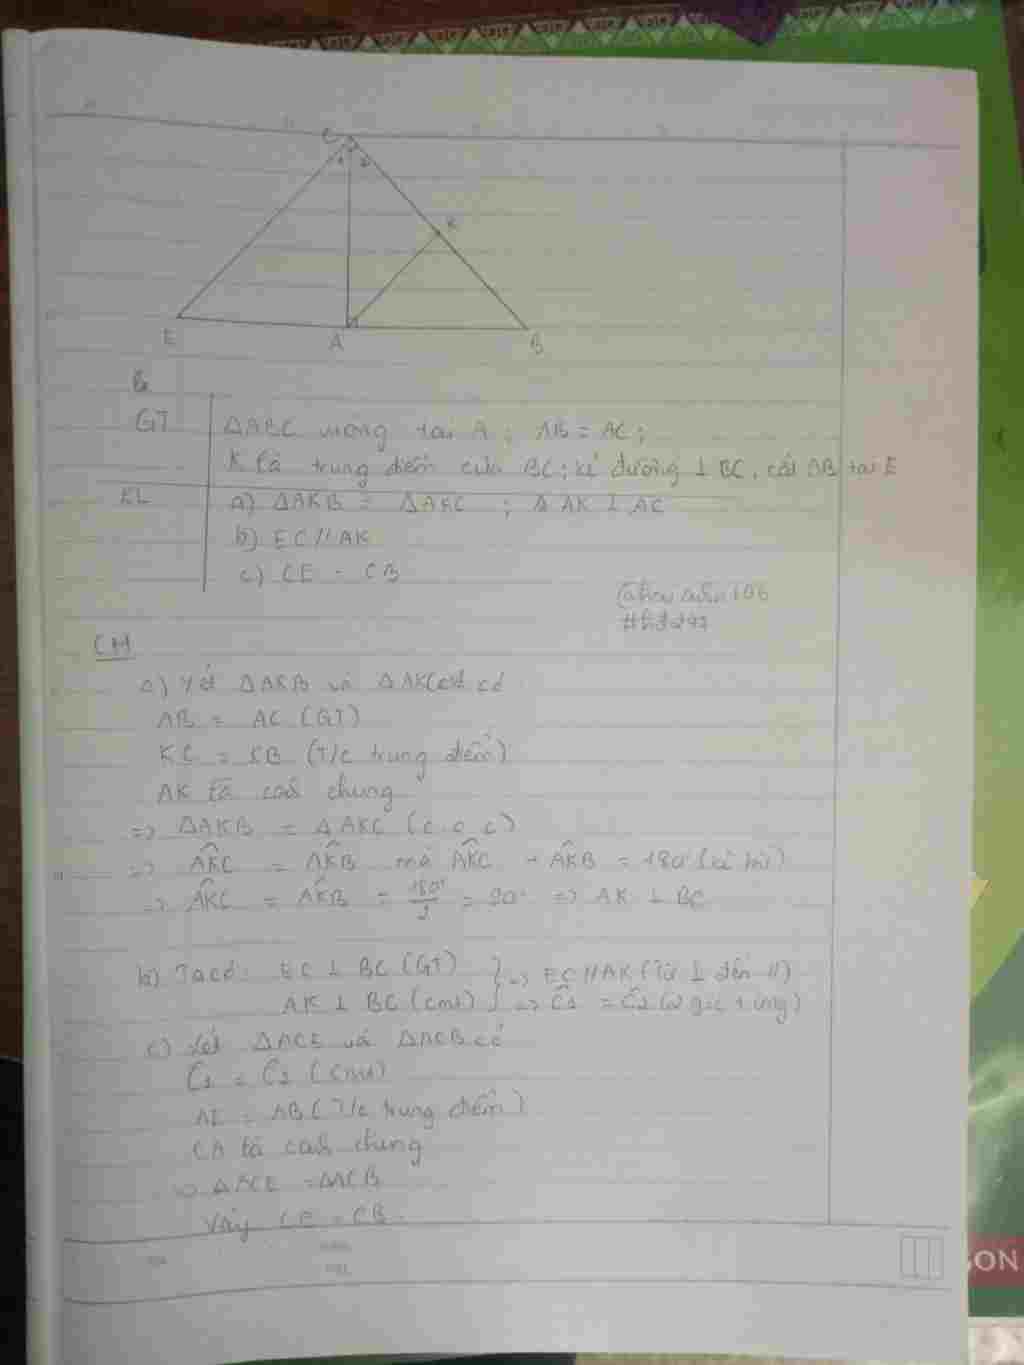 C
1 2
K
E
A
B
GT
ΔABC vuông tại A ; AB = AC ;
K là trung điểm của BC ; kẻ đường ⊥ BC, cắt AB tại E
KL
a) ΔAKB = ΔAKC ; AK ⊥ AC
b) EC // AK
c) CE = CB
#hd247
CM
a) Xét ΔAKB và ΔAKC có
AB = AC (GT)
KC = KB (T/c trung điểm)
AK là cạh chung
=> ΔAKB = ΔAKC (c.c.c)
=> AKC = AKB mà AKC + AKB = 180° (kề bù)
=> AKC = AKB = 180°/2 = 90° => AK ⊥ BC
b) Ta có: EC ⊥ BC (GT) } => EC // AK (Từ ⊥ đến //)
AK ⊥ BC (cmt) } => C1 = C2 (2 góc t ứng)
c) Xét ΔACE và ΔACB có
C1 = C2 (cmt)
AE = AB (T/c trung điểm)
CA là cạh chung
=> ΔACE = ΔACB
Vậy CE = CB
SON